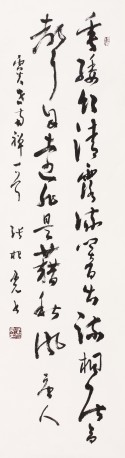 垂緌飲清露流響出疏桐居高
聲自遠非是藉秋風 唐人
虞世南蟬一首 張旭光書